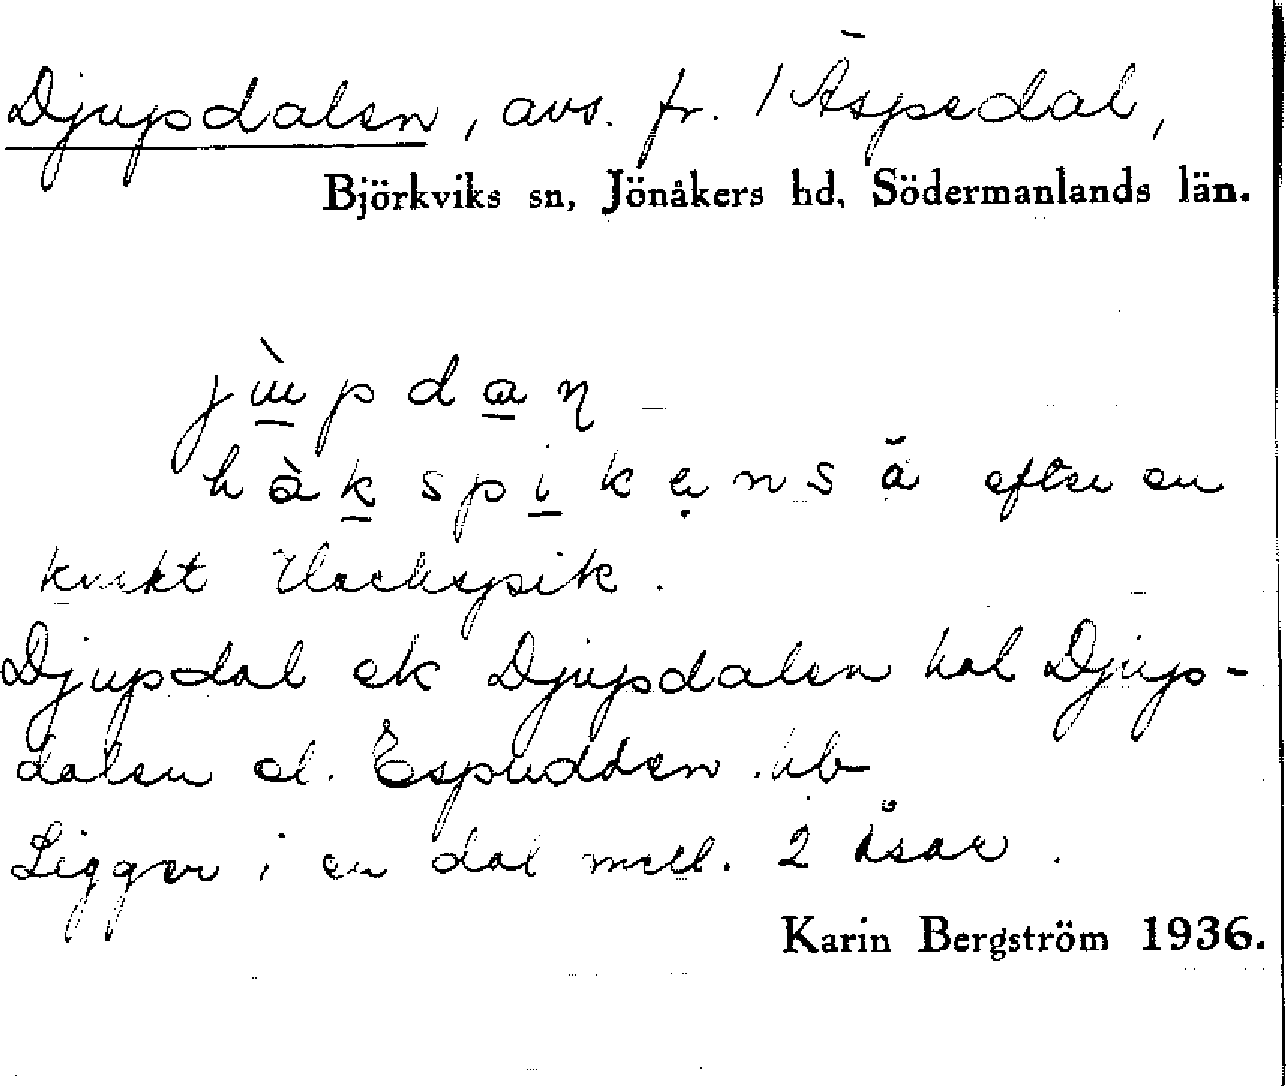 Djupdalen, avs. fr. 1 Äspedal,
Björkviks sn, Jönåkers hd, Södermanlands län.
jùpdaɳ
hàkspikens å efter en
kvickt Hackspik.
Djupdal ek Djupdalen hal Djup-
dalen el. Espudden. hb
Ligger i en dal mell. 2 åsar.
Karin Bergström 1936.